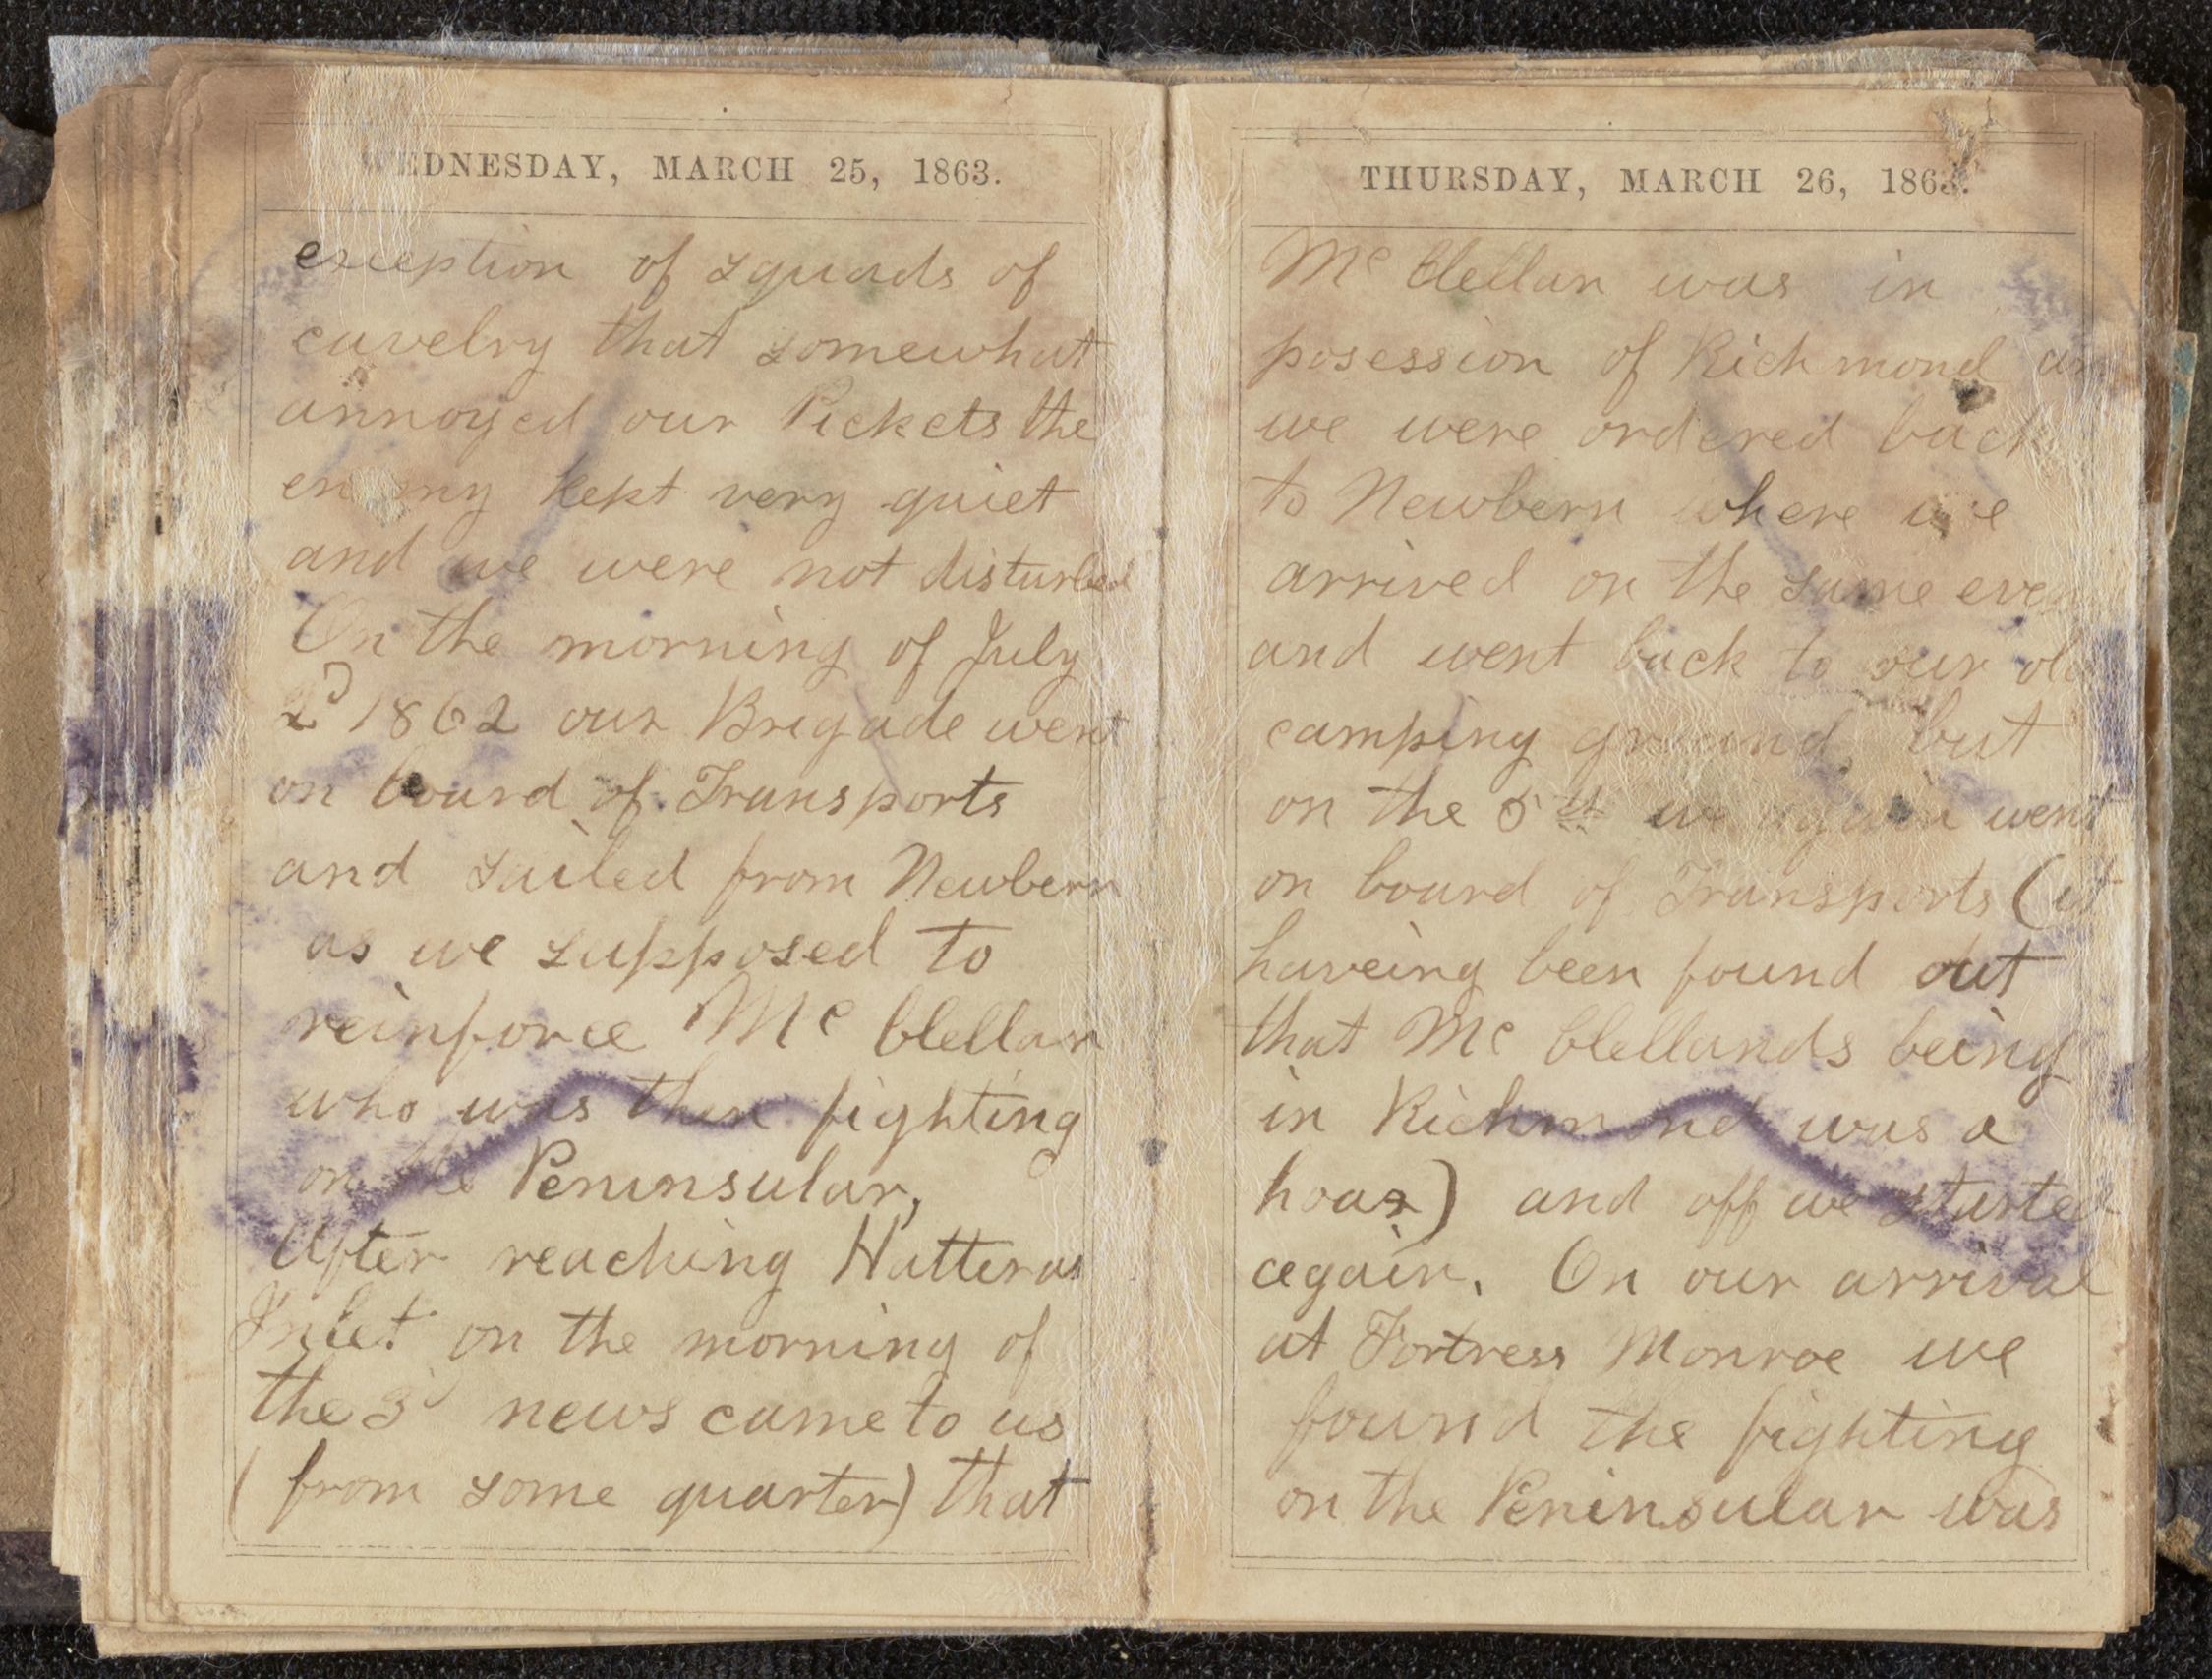 WEDNESDAY, MARCH 25, 1863.
exception of squads of
cavelry that somewhat
annoyed our Pickets the
enemy kept very quiet
and we were not disturbed
On the morning of July
2d 1862 our Brigade went
on board of Transports
and sailed from Newbern
as we supposed to
reinforce Mc Clellan
who was then fighting
on the Peninsular,
After reaching Hatteras
Inlet on the morning of
the 3d news came to us
(from some quarter) that
THURSDAY, MARCH 26, 1863.
Mc Clellan was in
posession of Richmond an
we were ordered back
to Newbern where we
arrived on the same eve
and went back to our old
camping ground, but
on the 5th we again went
on board of Transports (it
haveing been found out
that Mc Clellands being
in Richmond was a
hoax) and off we started
again. On our arrival
at Fortress Monroe we
found the fighting
on the Peninsular was